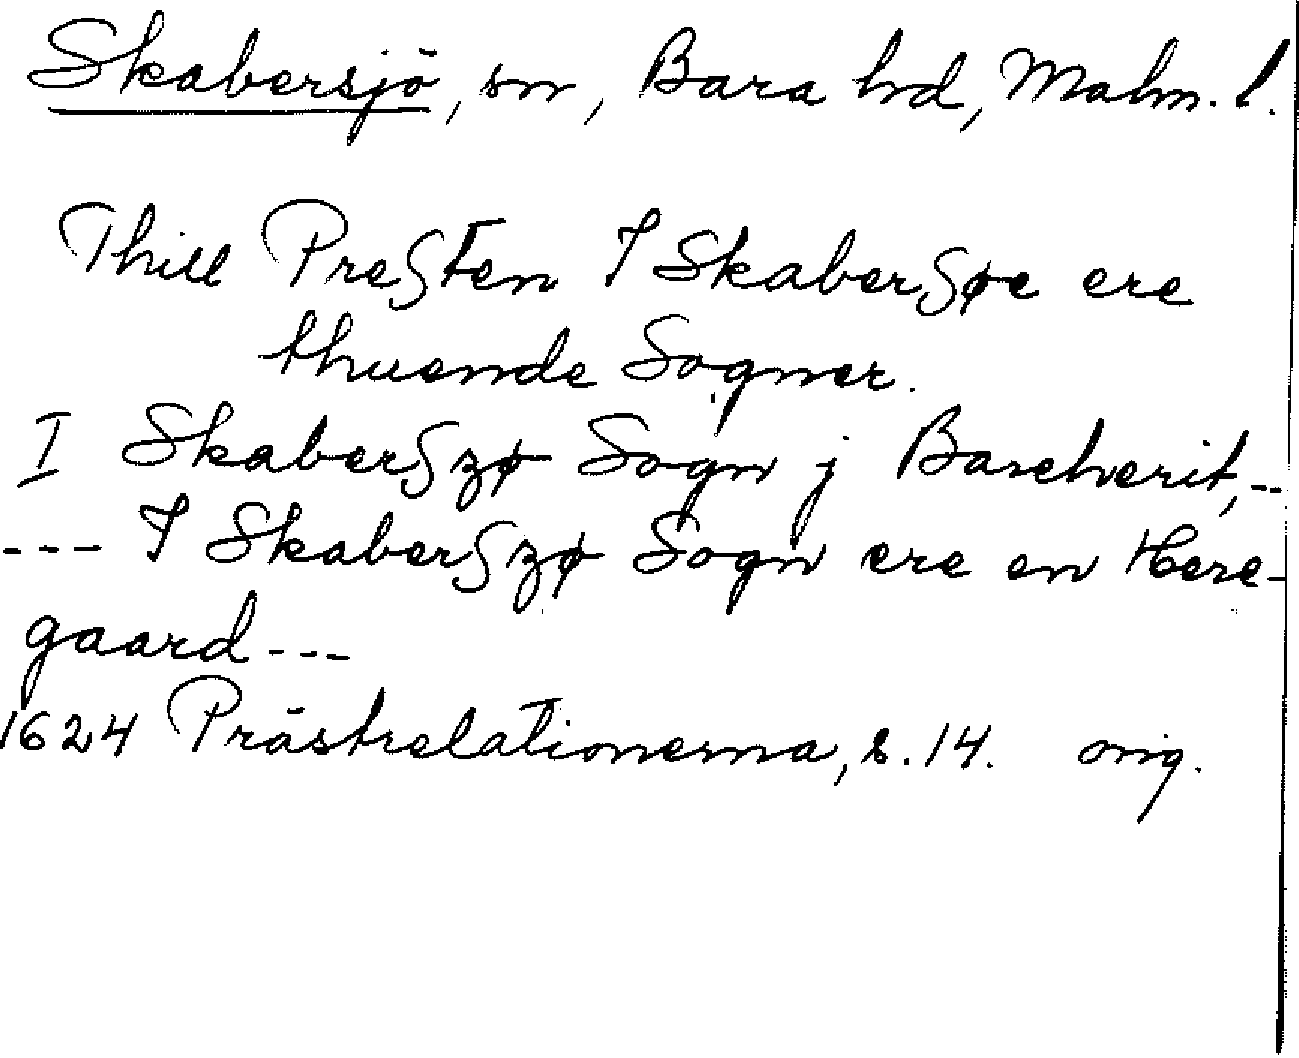 Skabersjö, sn, Bara hd, Malm. l.
Thill Preſten I Skaberſøe ere
thuende Sogner.
I Skaberſzø Sogn j Bareherit, --
--- I Skaberſzø Sogn ere en Here-
gaard ---
1624 Prästrelationerna, s. 14. orig.